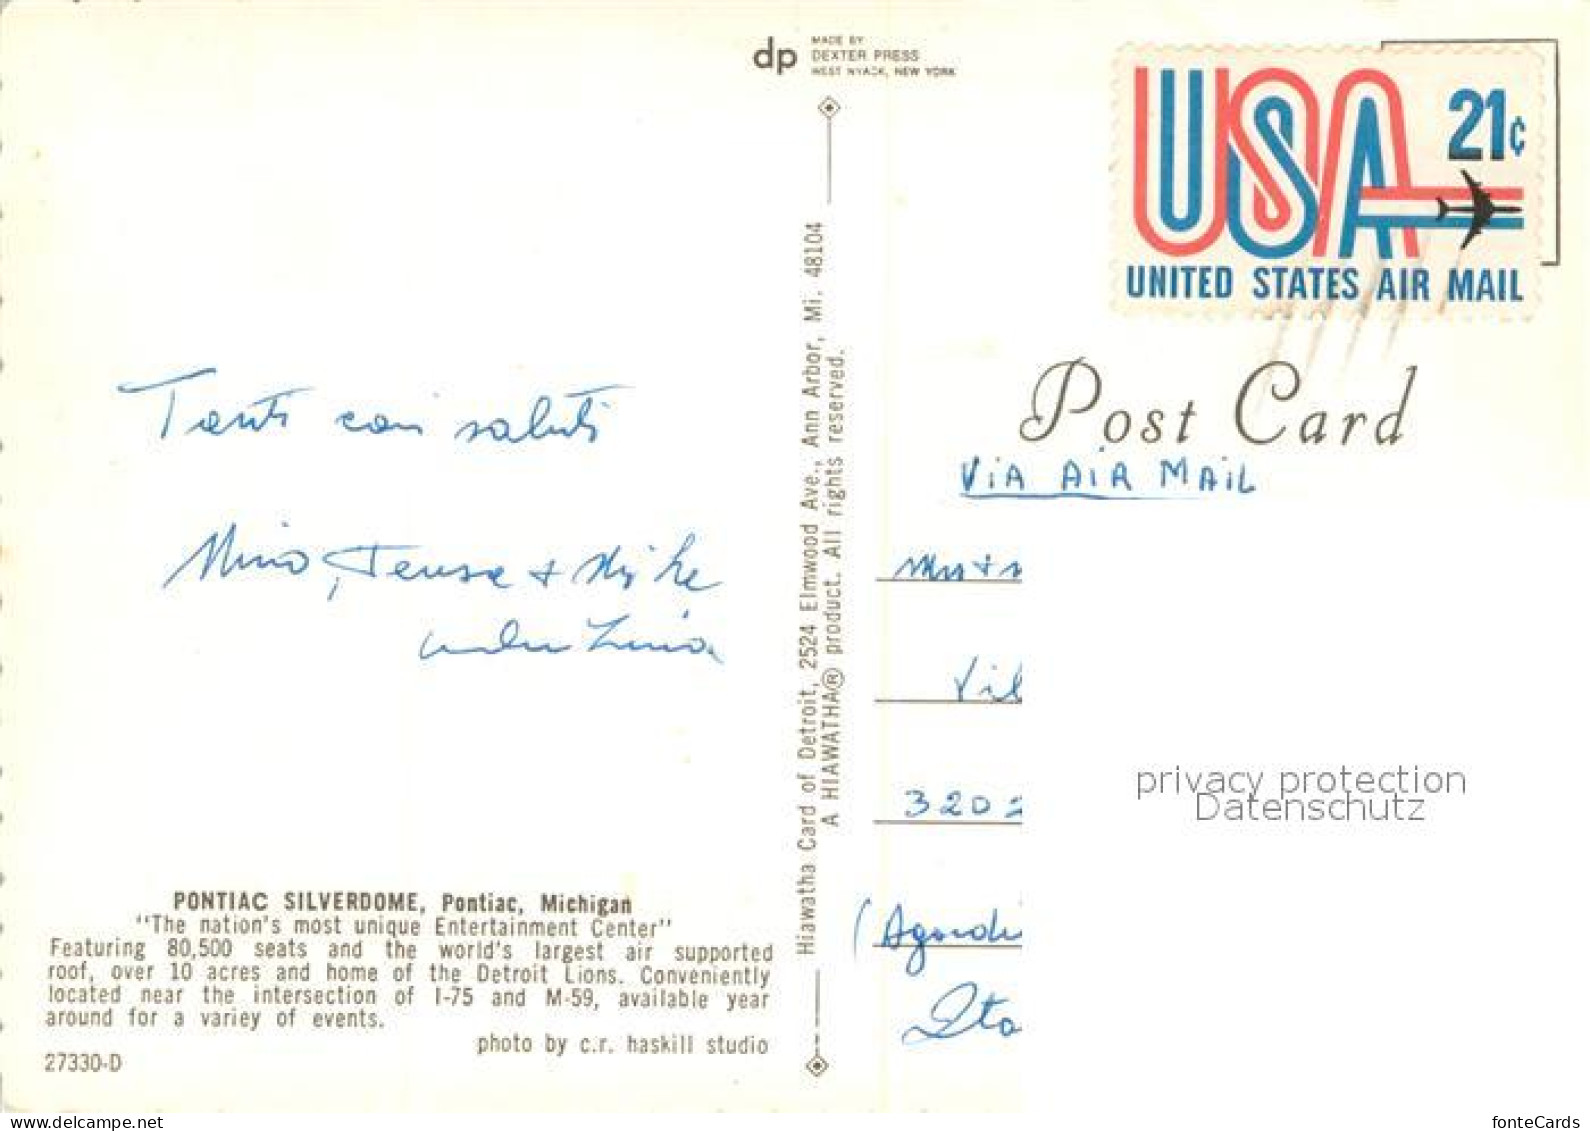 dp
MADE BY
DEXTER PRESS
WEST NYACK, NEW YORK
USA 21¢
UNITED STATES AIR MAIL
Post Card
VIA AIR MAIL
Tanti cari saluti
Nino, Teresa + Mike
Hiawatha Card of Detroit, 2524 Elmwood Ave., Ann Arbor, Mi. 48104
A HIAWATHA® product. All rights reserved.
Vil
3202
(Agordi
Ita
privacy protection
Datenschutz
PONTIAC SILVERDOME, Pontiac, Michigan
"The nation's most unique Entertainment Center"
Featuring 80,500 seats and the world's largest air supported
roof, over 10 acres and home of the Detroit Lions. Conveniently
located near the intersection of I-75 and M-59, available year
around for a variey of events.
photo by c.r. haskill studio
27330-D
www.delcampe.net
fonteCards